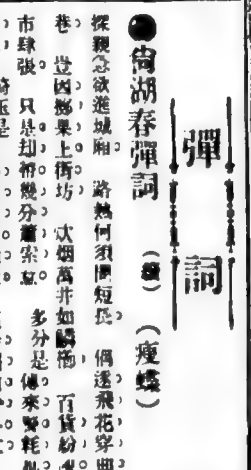 彈詞
●尙湖春彈詞 （續） （瘦蝶）
探親念欲進城廂 路熟何須問短長 偶逐飛花穿曲
巷 豈因鄉果上街坊 炊烟萬井如鱗 百貨紛
市肆張 只是却帶幾分蕭索 多分是 傳來警耗